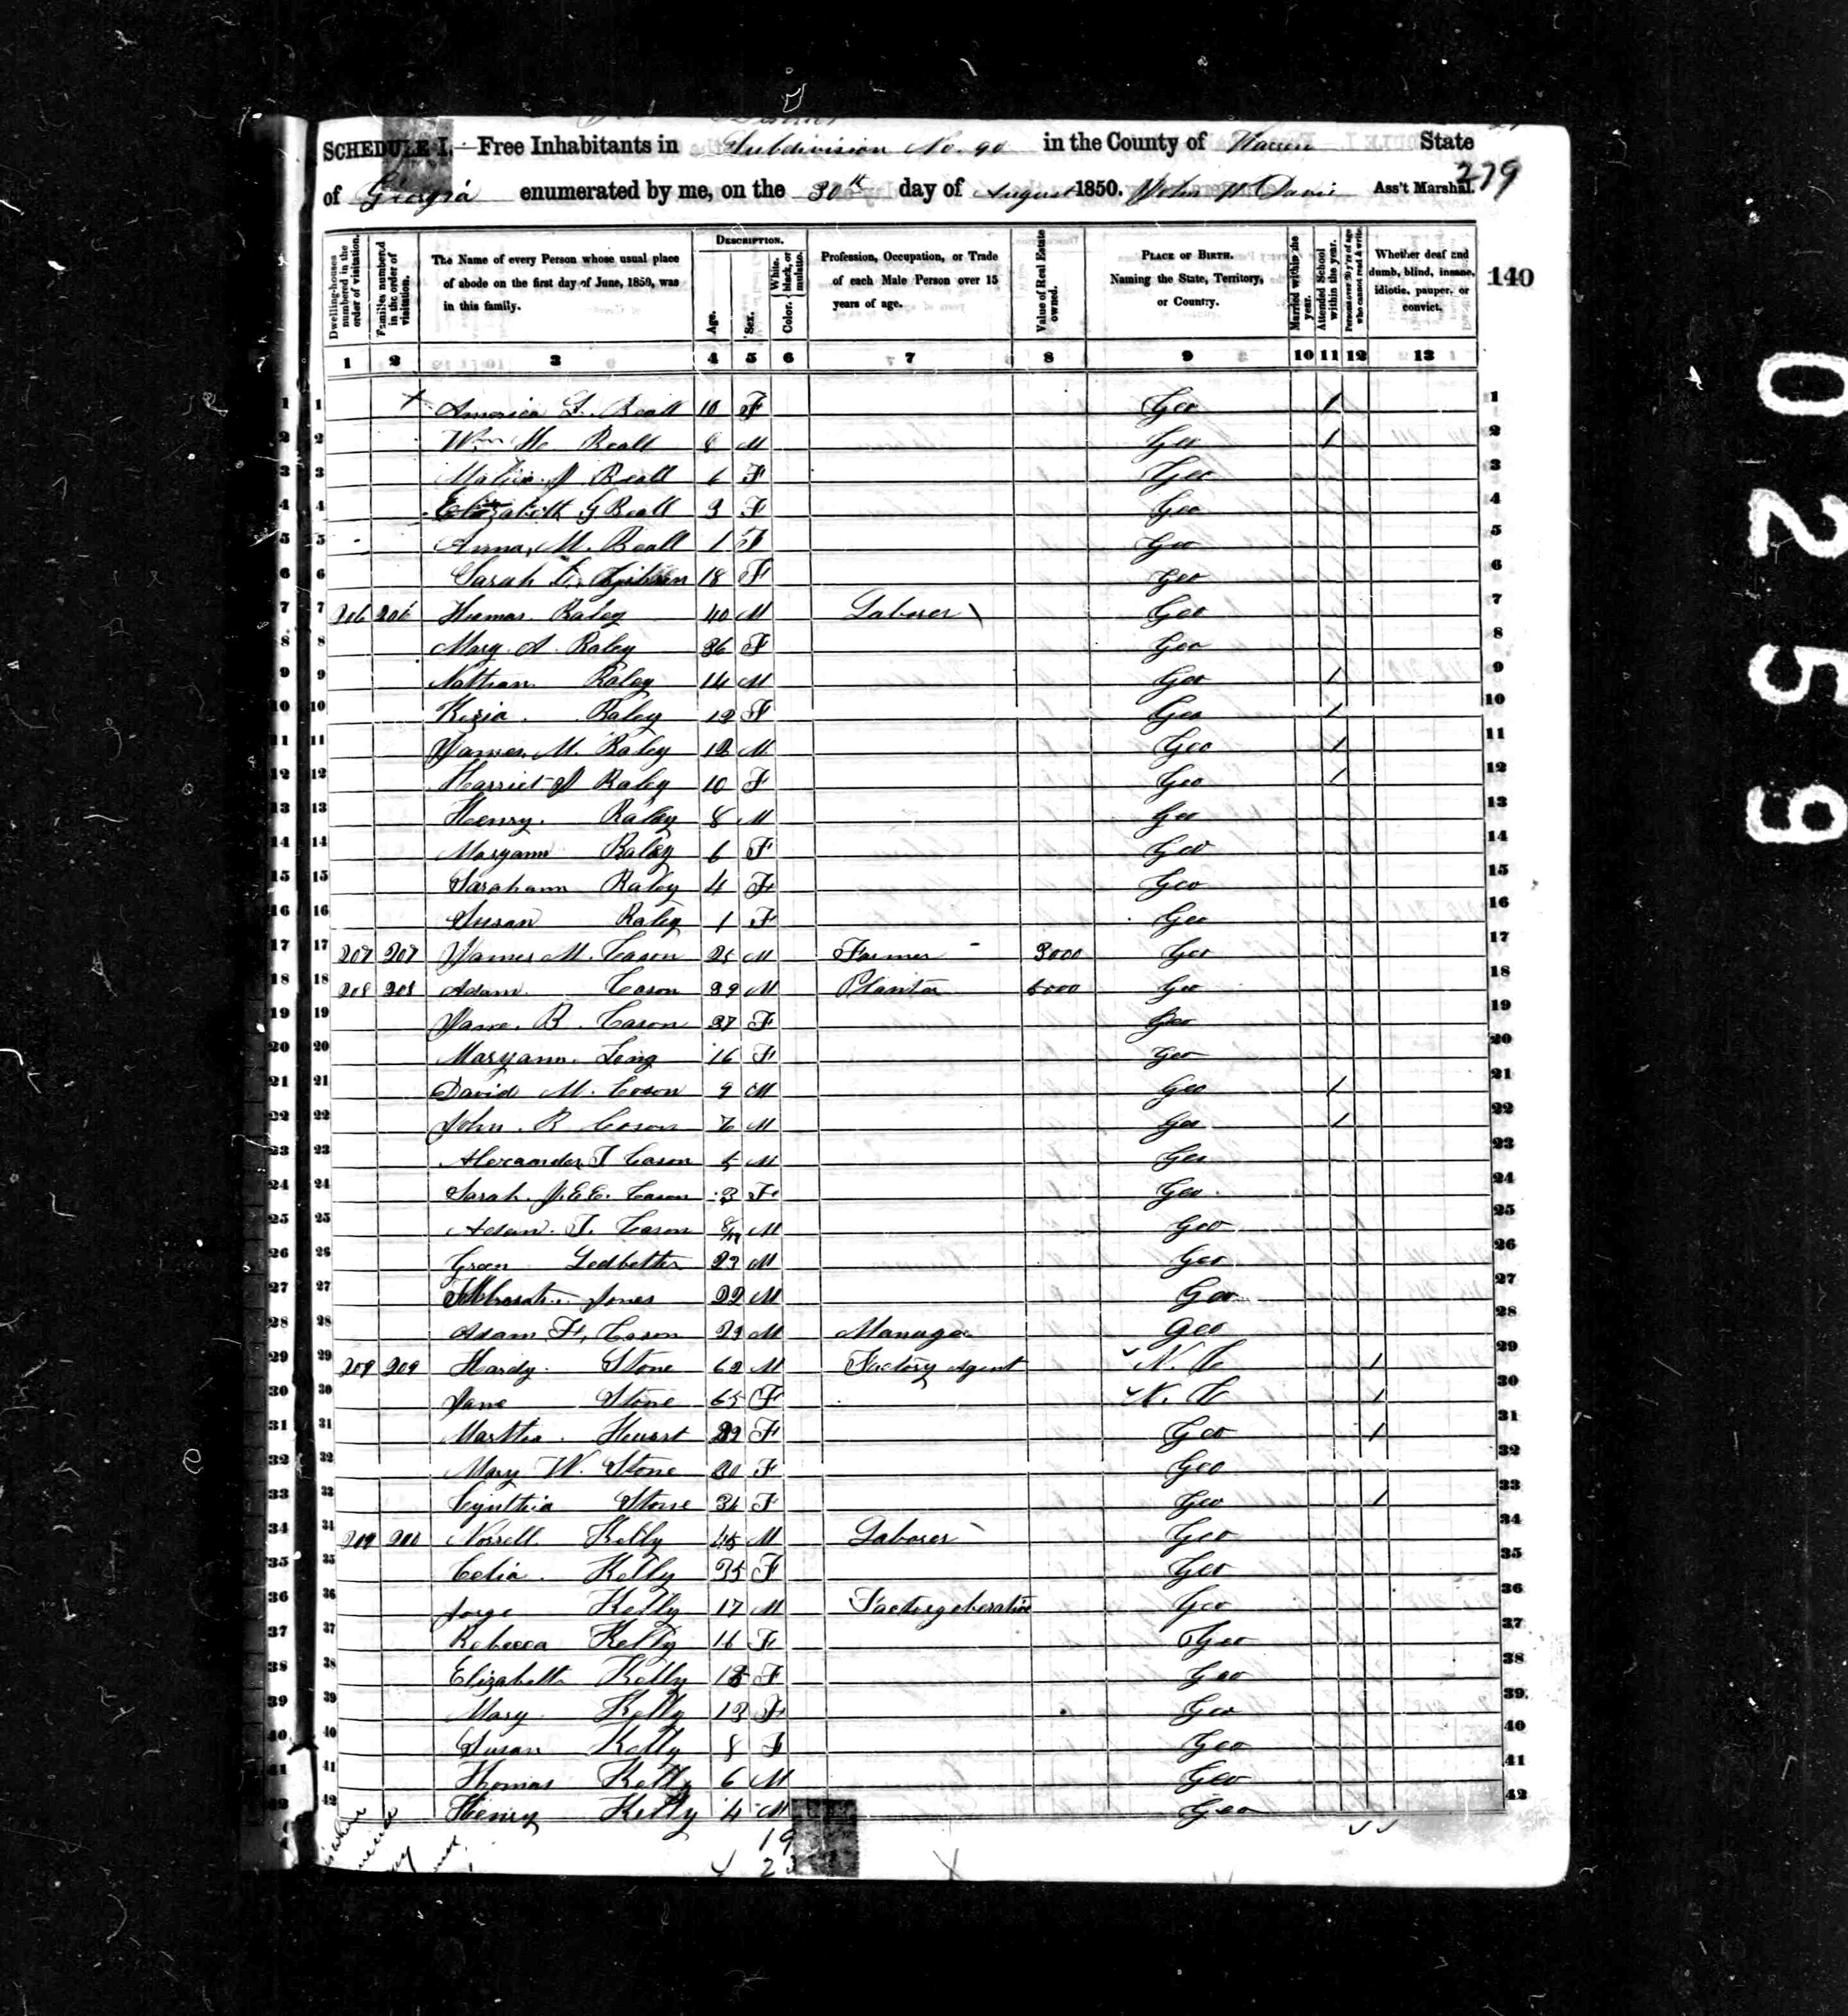 SCHEDULE I.—Free Inhabitants in Subdivision No. 90 in the County of Warren State
of Georgia enumerated by me, on the 30th day of August 1850. John H. Davis Ass't Marshal. 279
140
Dwelling-houses numbered in the order of visitation.
Families numbered in the order of visitation.
The Name of every Person whose usual place of abode on the first day of June, 1850, was in this family.
DESCRIPTION.
Age.
Sex.
Color, { White, black, or mulatto.
Profession, Occupation, or Trade of each Male Person over 15 years of age.
Value of Real Estate owned.
PLACE OF BIRTH. Naming the State, Territory, or Country.
Married within the year.
Attended School within the year.
Persons over 20 y'rs of age who cannot read & write.
Whether deaf and dumb, blind, insane, idiotic, pauper, or convict.
1 2 3 4 5 6 7 8 9 10 11 12 13
1 1 America Beall 10 F Geo / 1
2 2 Wm H. Beall 8 M Geo / 2
3 3 Beall 6 F Geo 3
4 4 Elizabeth G Beall 3 F Geo 4
5 5 Anna M. Beall 1 F Geo 5
6 6 Sarah 18 F Geo 6
7 7 206 206 Thomas Raley 40 M Laborer Geo 7
8 8 Mary A. Raley 36 F Geo 8
9 9 Nathan Raley 14 M Geo / 9
10 10 Kezia Raley 12 F Geo / 10
11 11 James M. Raley 12 M Geo / 11
12 12 Harriet J Raley 10 F Geo / 12
13 13 Henry Raley 8 M Geo 13
14 14 Maryann Raley 6 F Geo 14
15 15 Sarahann Raley 4 F Geo 15
16 16 Susan Raley 1 F Geo 16
17 17 207 207 James M. Cason 25 M Farmer 3000 Geo 17
18 18 208 208 Adam Cason 39 M Planter 6000 Geo 18
19 19 Jane B. Cason 37 F Geo 19
20 20 Maryann 16 F Geo 20
21 21 David M. Cason 9 M Geo / 21
22 22 John R Cason M Geo / 22
23 23 Alexander T Cason 5 M Geo 23
24 24 Sarah J.E.E. Cason 3 F Geo 24
25 25 Adam T. Cason 8/12 M Geo 25
26 26 Green Ledbetter 23 M Geo 26
27 27 Jones 22 M Geo 27
28 28 Adam F. Cason 29 M Manager Geo 28
29 29 209 209 Hardy Stone 62 M Factory Agent N. C / 29
30 30 Jane Stone 65 F N. C / 30
31 31 Martha F Geo / 31
32 32 Mary W. Stone 20 F Geo 32
33 33 Cynthia Stone F Geo / 33
34 34 209 Norrell Kelly 45 M Laborer Geo 34
35 35 Celia Kelly 35 F Geo 35
36 36 Kelly 17 M Factory operative Geo 36
37 37 Rebecca Kelly 16 F Geo 37
38 38 Elizabeth Kelly F Geo 38
39 39 Mary Kelly 13 F Geo 39
40 40 Susan Kelly 8 F Geo 40
41 41 Thomas Kelly 6 M Geo 41
42 42 Henry Kelly 4 M Geo 42
19
0259